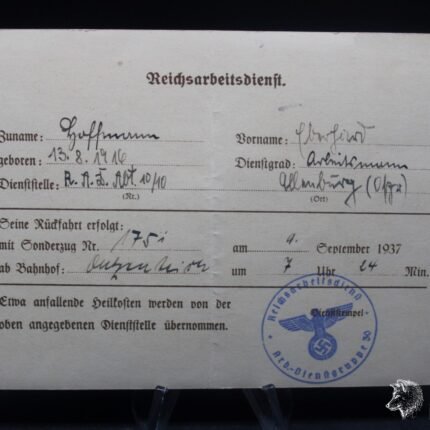 Reichsarbeitsdienst.
Zuname: Hoffmann Vorname: Eberhard
geboren: 13.8.1916 Dienstgrad: Arbeitsmann
Dienststelle: R.A.D. Abt. 10/10 Allenburg (Ostpr)
(Nr.) (Ort)
Seine Rückfahrt erfolgt:
mit Sonderzug Nr. 175i am 9. September 1937
ab Bahnhof: um 7 Uhr 24 Min.
Etwa anfallende Heilkosten werden von der
oben angegebenen Dienststelle übernommen.
Dienststempel
Reichsarbeitsdienst
Arb.-Dienstgruppe 30